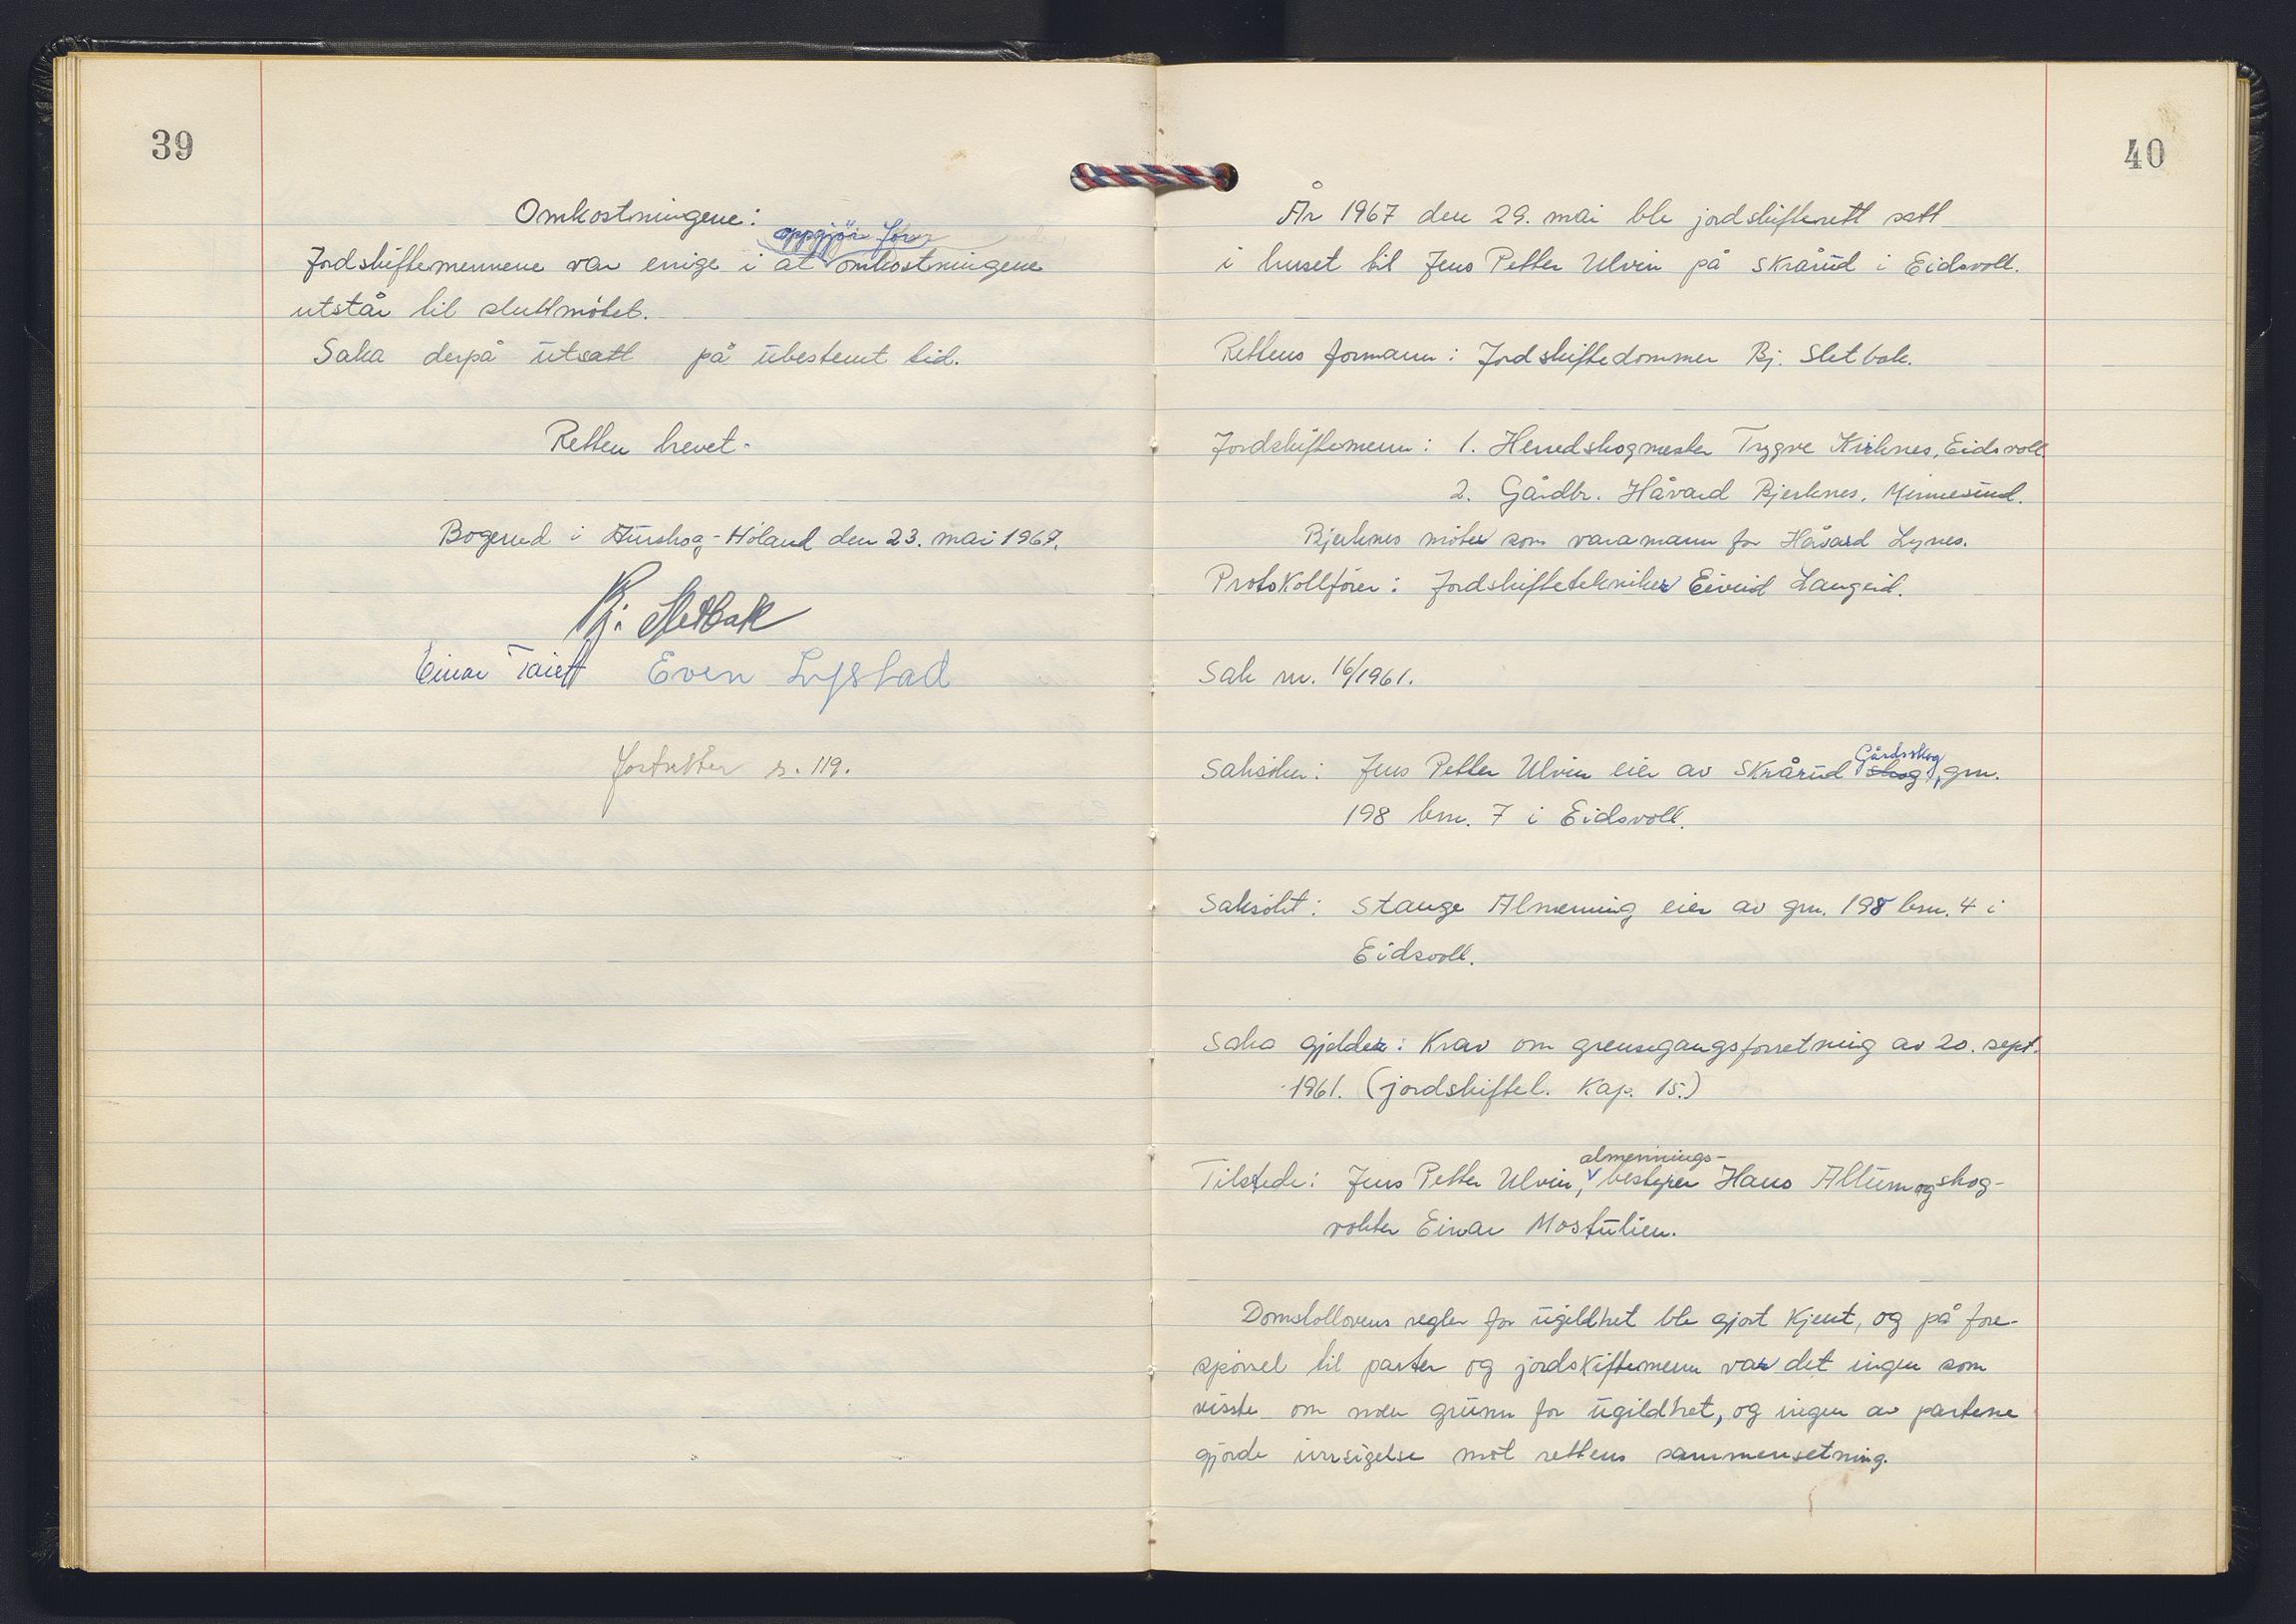 39
Omkostningene:
oppgjör for
Jordskiftemennene var enige i at omkostningene
utstår til sluttmötet.
Saka derpå utsatt på ubestemt tid.
Retten hevet.
Bogerud i Aurskog-Höland den 23. mai 1967.
Bj. Sletbak
Einar Even Lystad
Fortsetter s. 119.
40
År 1967 den 29. mai ble jordskifterett satt
i huset til Jens Petter Ulvin på Skårud i Eidsvoll.
Rettens formann: Jordskiftedommer Bj. Sletbak.
Jordskiftemenn: 1. Herredskogmester Trygve Kirknes, Eidsvoll
2. Gårdbr. Håvard Bjerknes, Minnesund.
Bjerknes möter som varamann for Håvard Lynes.
Protokollförer: Jordskiftetekniker Eivind Langeid.
Sak nr. 16/1961.
Gårdsskog
Saksöker: Jens Petter Ulvin eier av Skrårud skog, gnr.
198 bnr. 7 i Eidsvoll.
Saksökt: Stange Almenning eier av gnr. 198 bnr. 4 i
Eidsvoll.
Saka gjelder: Krav om grensegangsforretning av 20. sept.
1961. (jordskiftel. Kap. 15.)
almennings-
Tilstede: Jens Petter Ulvin, bestyrer Hans Alturn og skog-
vokter Einar Mostulien.
Domstollovens regler for ugildhet ble gjort kjent, og på fore-
spörsel til parter og jordskiftemenn var det ingen som
visste om noen grunn for ugildhet, og ingen av partene
gjorde innsigelse mot rettens sammensetning.